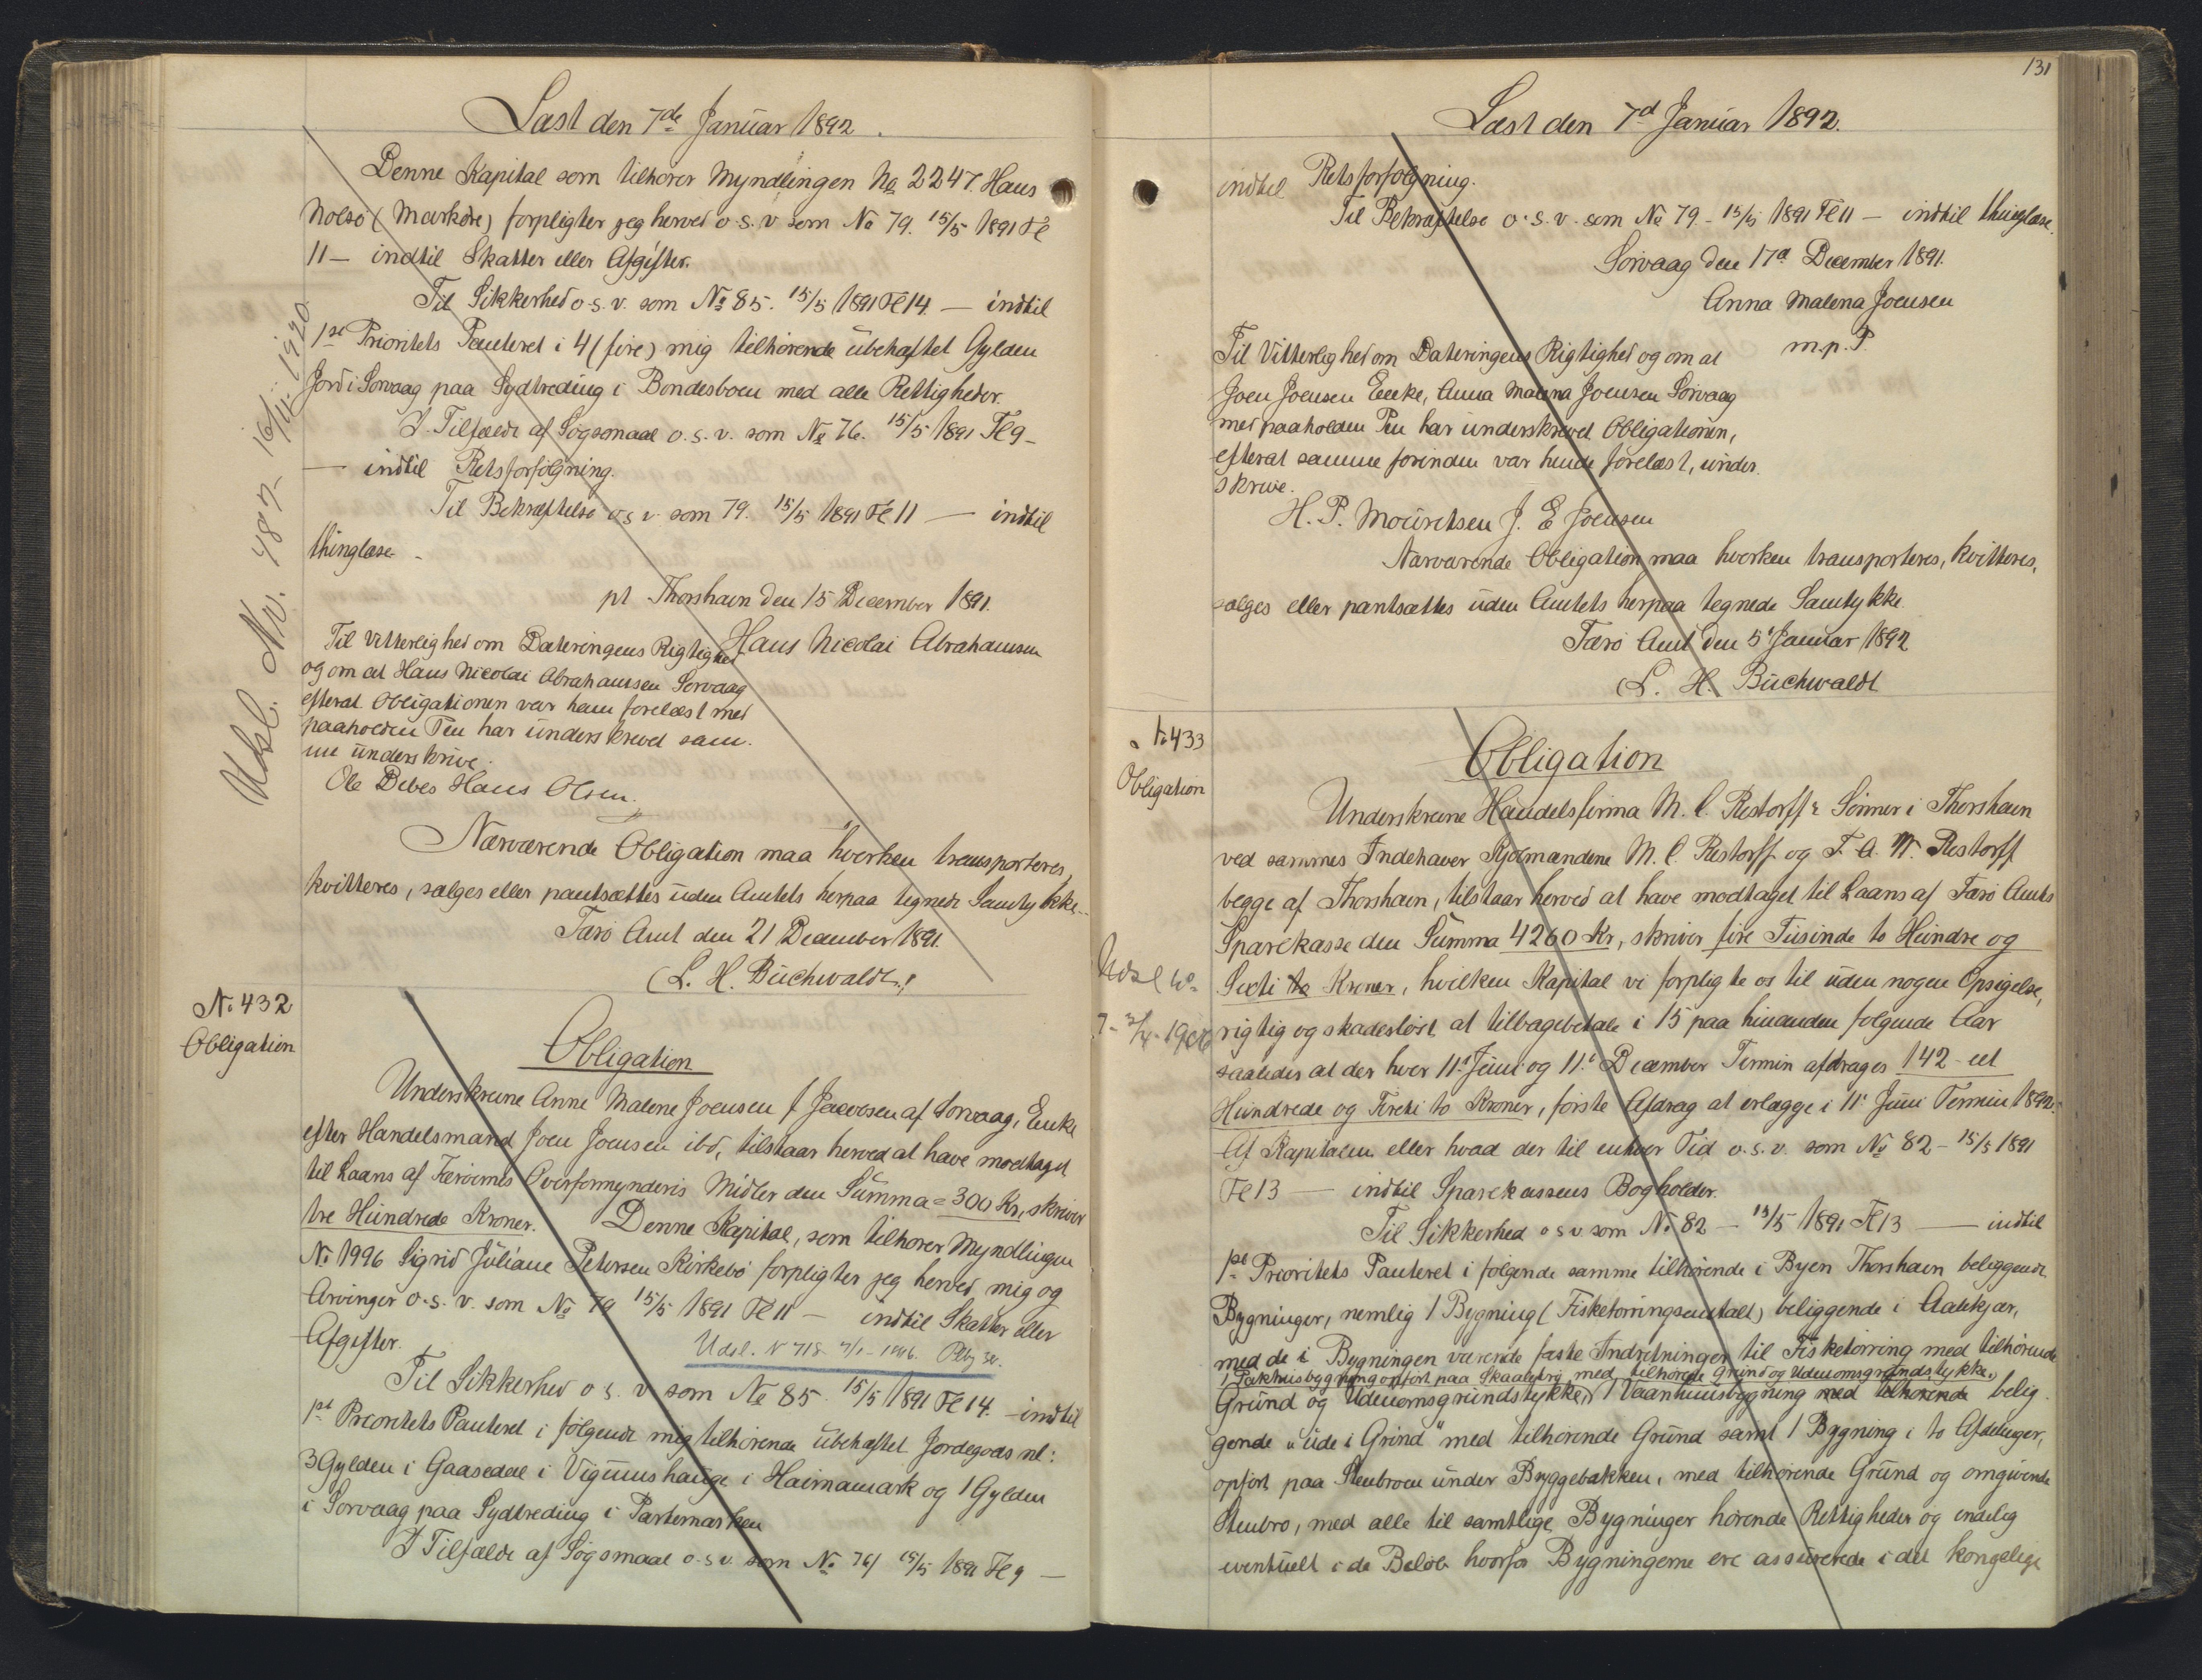 Læst den 7de Januar 1892.
Denne Kapital som tilhører Myndlingen No 2247 Hans
Nolsø (Markøre) forpligter jeg herved o.s.v. som No 79. 15/5 1891 Fl
11 — indtil Skatter eller Afgifter.
Til Sikkerhed o.s.v. som No 85. 15/5 1891 Fl 14. — indtil
1ste Prioritets Panteret i 4 (fire) mig tilhørende ubehæftet Gylden
Jord i Sorvaag paa Sydtreding i Bondesboen med alle Rettigheder.
I Tilfælde af Søgsmaal o.s.v. som No 76. 15/5 1891 Fl 9 —
— indtil Retsforfølgning.
Til Bekræftelse o.s.v. som 79. 15/5 1891 Fl 11 — indtil
thinglæse.
pt Thorshavn den 15 December 1891.
Hans Nicolai Abrahamsen
Til Vitterlighed om Dateringens Rigtighed
og om at Hans Nicolai Abrahamsen Sorvaag
efterat Obligationen var ham forelæst med
paaholden Pen har underskrevet sam-
me underskrive.
Ole Debes Hans Olsen.
Nærværende Obligation maa hverken transporteres,
kvitteres, sælges eller pantsættes uden Amtets herpaa tegnede Samtykke.
Færø Amt den 21 December 1891.
L. H. Buchwaldt.
Udsl. Nr. 487 - 16/11 1920.
No 432
Obligation
Obligation
Underskrevne Anne Malene Joensen f Jacobsen af Sorvaag, Enke
efter Handelsmand Joen Joensen ibd, tilstaar herved at have modtaget
til Laans af Færøernes Overformynderis Midler den Summa = 300 Kr, skriver
tre Hundrede Kroner. Denne Kapital, som tilhører Myndlingen
No 1996 Sigrid Juliane Petersen Kirkebø forpligter jeg herved mig og
Arvinger o.s.v. som No 79 15/5 1891 Fl 11 — indtil Skatter eller
Afgifter.
Udsl. N 718
Til Sikkerhed o.s.v. som No 85. 15/5 1891 Fl 14. — indtil
1ste Prioritets Panteret i følgende mig tilhørende ubehæftet Jordegods nl:
3 Gylden i Gaasedal i Vigumshauge i Haimamark og 1 Gylden
i Sorvaag paa Sydtreding i Partemarken
I Tilfælde af Søgsmaal o.s.v. som No 76/ 15/5 1891 Fl 9 —
131
Læst den 7d Januar 1892.
indtil Retsforfølgning.
Til Bekræftelse o.s.v. som No 79 - 15/5 1891 Fl 11 — indtil thinglæse.
Sorvaag den 17d December 1891.
Anna Malena Joensen
m.p.P.
Til Vitterlighed om Dateringens Rigtighed og om at
Joen Joensen Encke, Anna Malena Joensen Sorvaag
med paaholden Pen har underskrevet Obligationen,
efterat samme forinden var hende forelæst, under-
skrive.
H. P. Mouritsen J. E Joensen
Nærværende Obligation maa hverken transporteres, kvitteres,
sælges eller pantsættes uden Amtets herpaa tegnede Samtykke.
Færø Amt den 5' Januar 1892
L. H. Buchwaldt
No 433
Obligation
Obligation
Underskrevne Handelsfirma M. C. Restorff & Sønner i Thorshavn
ved sammes Indehaver Kjøbmændene M. C. Restorff og F. A. W. Restorff
begge af Thorshavn, tilstaar herved at have modtaget til Laans af Færø Amts
Sparekasse den Summa 4260 Kr, skriver fire Tusinde to Hundre og
Sexti Kroner, hvilken Kapital vi forpligte os til uden nogen Opsigelse,
rigtig og skadesløst at tilbagebetale i 15 paa hinanden følgende Aar
saaledes at der hver 11' Juni og 11' December Termin afdrages 142 - et
Hundrede og Fireti to Kroner, første Afdrag at erlægge i 11' Juni Termin 1892.
Af Kapitalen eller hvad der til enhver Tid o.s.v. som No 82 - 15/5 1891
Fl 13 — indtil Sparekassens Bogholder.
Til Sikkerhed o.s.v. som No 82 - 15/5 1891 Fl 13 — indtil
1ste Prioritets Panteret i følgende samme tilhørende i Byen Thorshavn beliggende
Bygninger, nemlig 1 Bygning (Fisketørringsanstalt) beliggende i Aabekjær,
med de i Bygningen værende faste Indretninger til Fisketørring med tilhørende
1 Pakhusbygning opført paa Skaaletrø med tilhørende Grund og Udenomsgrundstykke,
Grund og Udenomsgrundstykke, 1 Vaanhuusbygning med tilhørende belig-
gende "ude i Grind" med tilhørende Grund samt 1 Bygning i to Afdelinger,
opført paa Stenbroen under Bryggebakken, med tilhørende Grund og omgivende
Stenbro, med alle til samtlige Bygninger hørende Rettigheder og endelig
eventuelt i de Beløb hvorfor Bygningerne ere assurerede i det kongelige